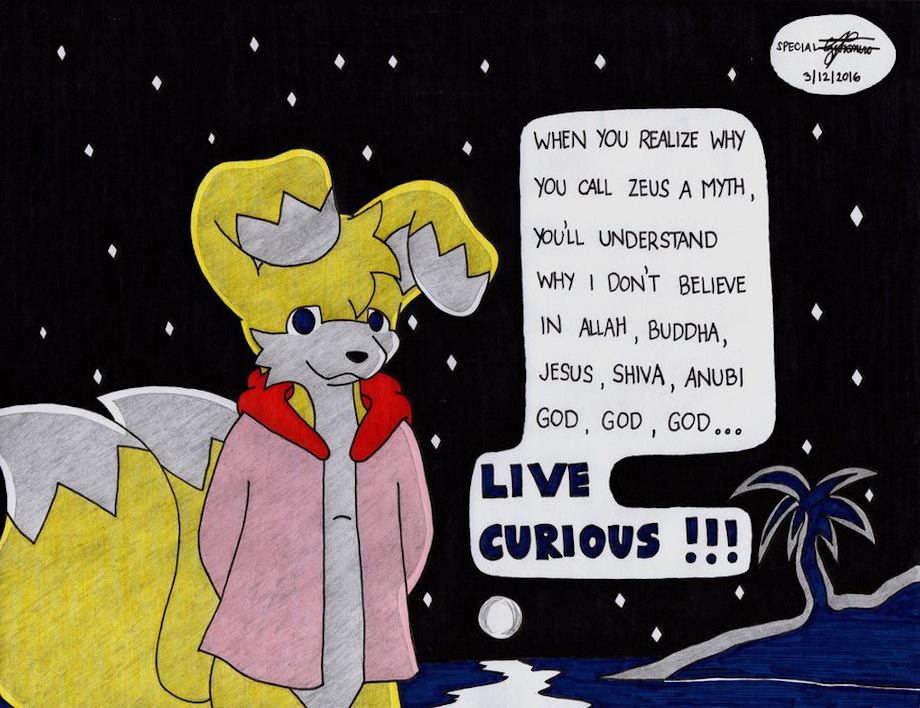 SPECIAL
3/12/2016
WHEN YOU REALIZE WHY
YOU CALL ZEUS A MYTH,
YOU'LL UNDERSTAND
WHY I DON'T BELIEVE
IN ALLAH, BUDDHA,
JESUS, SHIVA, ANUBI
GOD, GOD, GOD...
LIVE
CURIOUS !!!